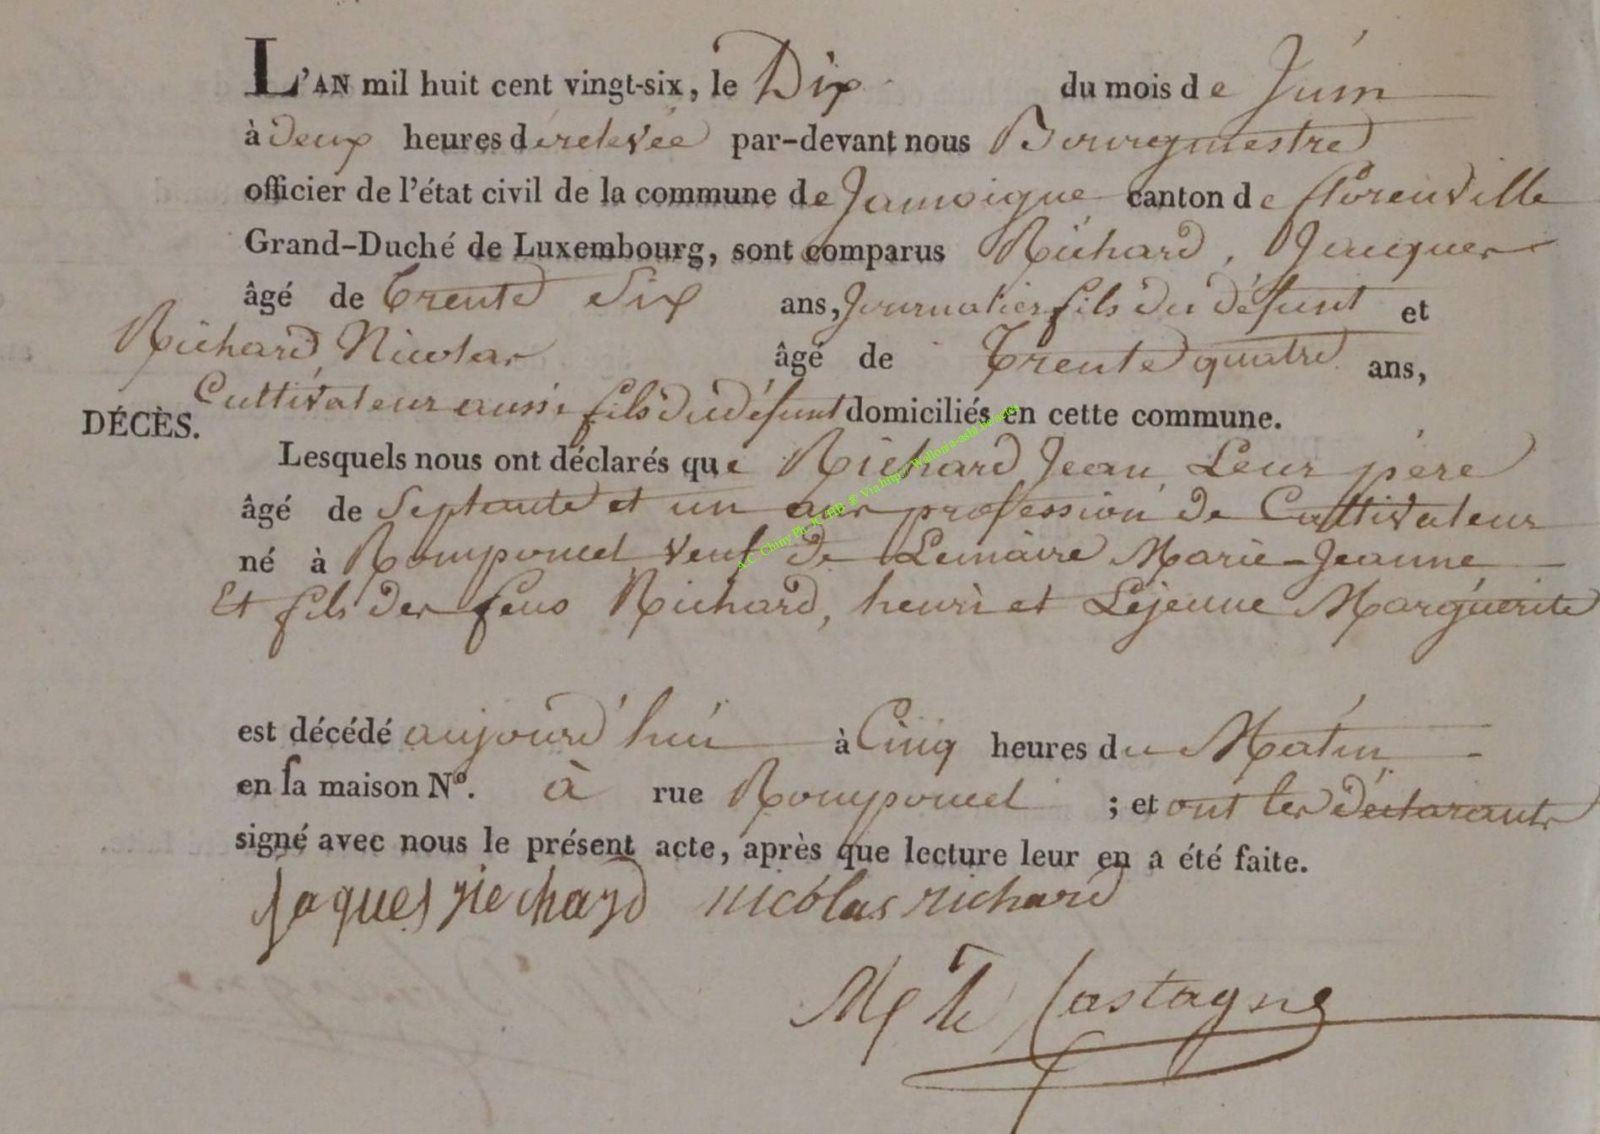 L'AN mil huit cent vingt-six, le Dix du mois de Juin
à deux heures de relevée par-devant nous Bourgmestre
officier de l'état civil de la commune de Jamoigne canton de Florenville
Grand-Duché de Luxembourg, sont comparus Richard, Jacques
âgé de trente six ans, Journalier fils du défunt et
Richard Nicolas âgé de trente quatre ans,
Cultivateur aussi fils du défunt domiciliés en cette commune.
DÉCÈS.
Lesquels nous ont déclarés que Richard Jean, Leur père
âgé de Septante et un ans profession de Cultivateur
né à Romponcel veuf de Lemaire Marie-Jeanne
Et fils des feus Richard, henri et Lejeune Marguerite
est décédé aujourd'hui à Cinq heures du Matin
en sa maison Nº. à rue Romponcel ; et ont les déclarants
signé avec nous le présent acte, après que lecture leur en a été faite.
jaques richard nicolas richard
Castagne